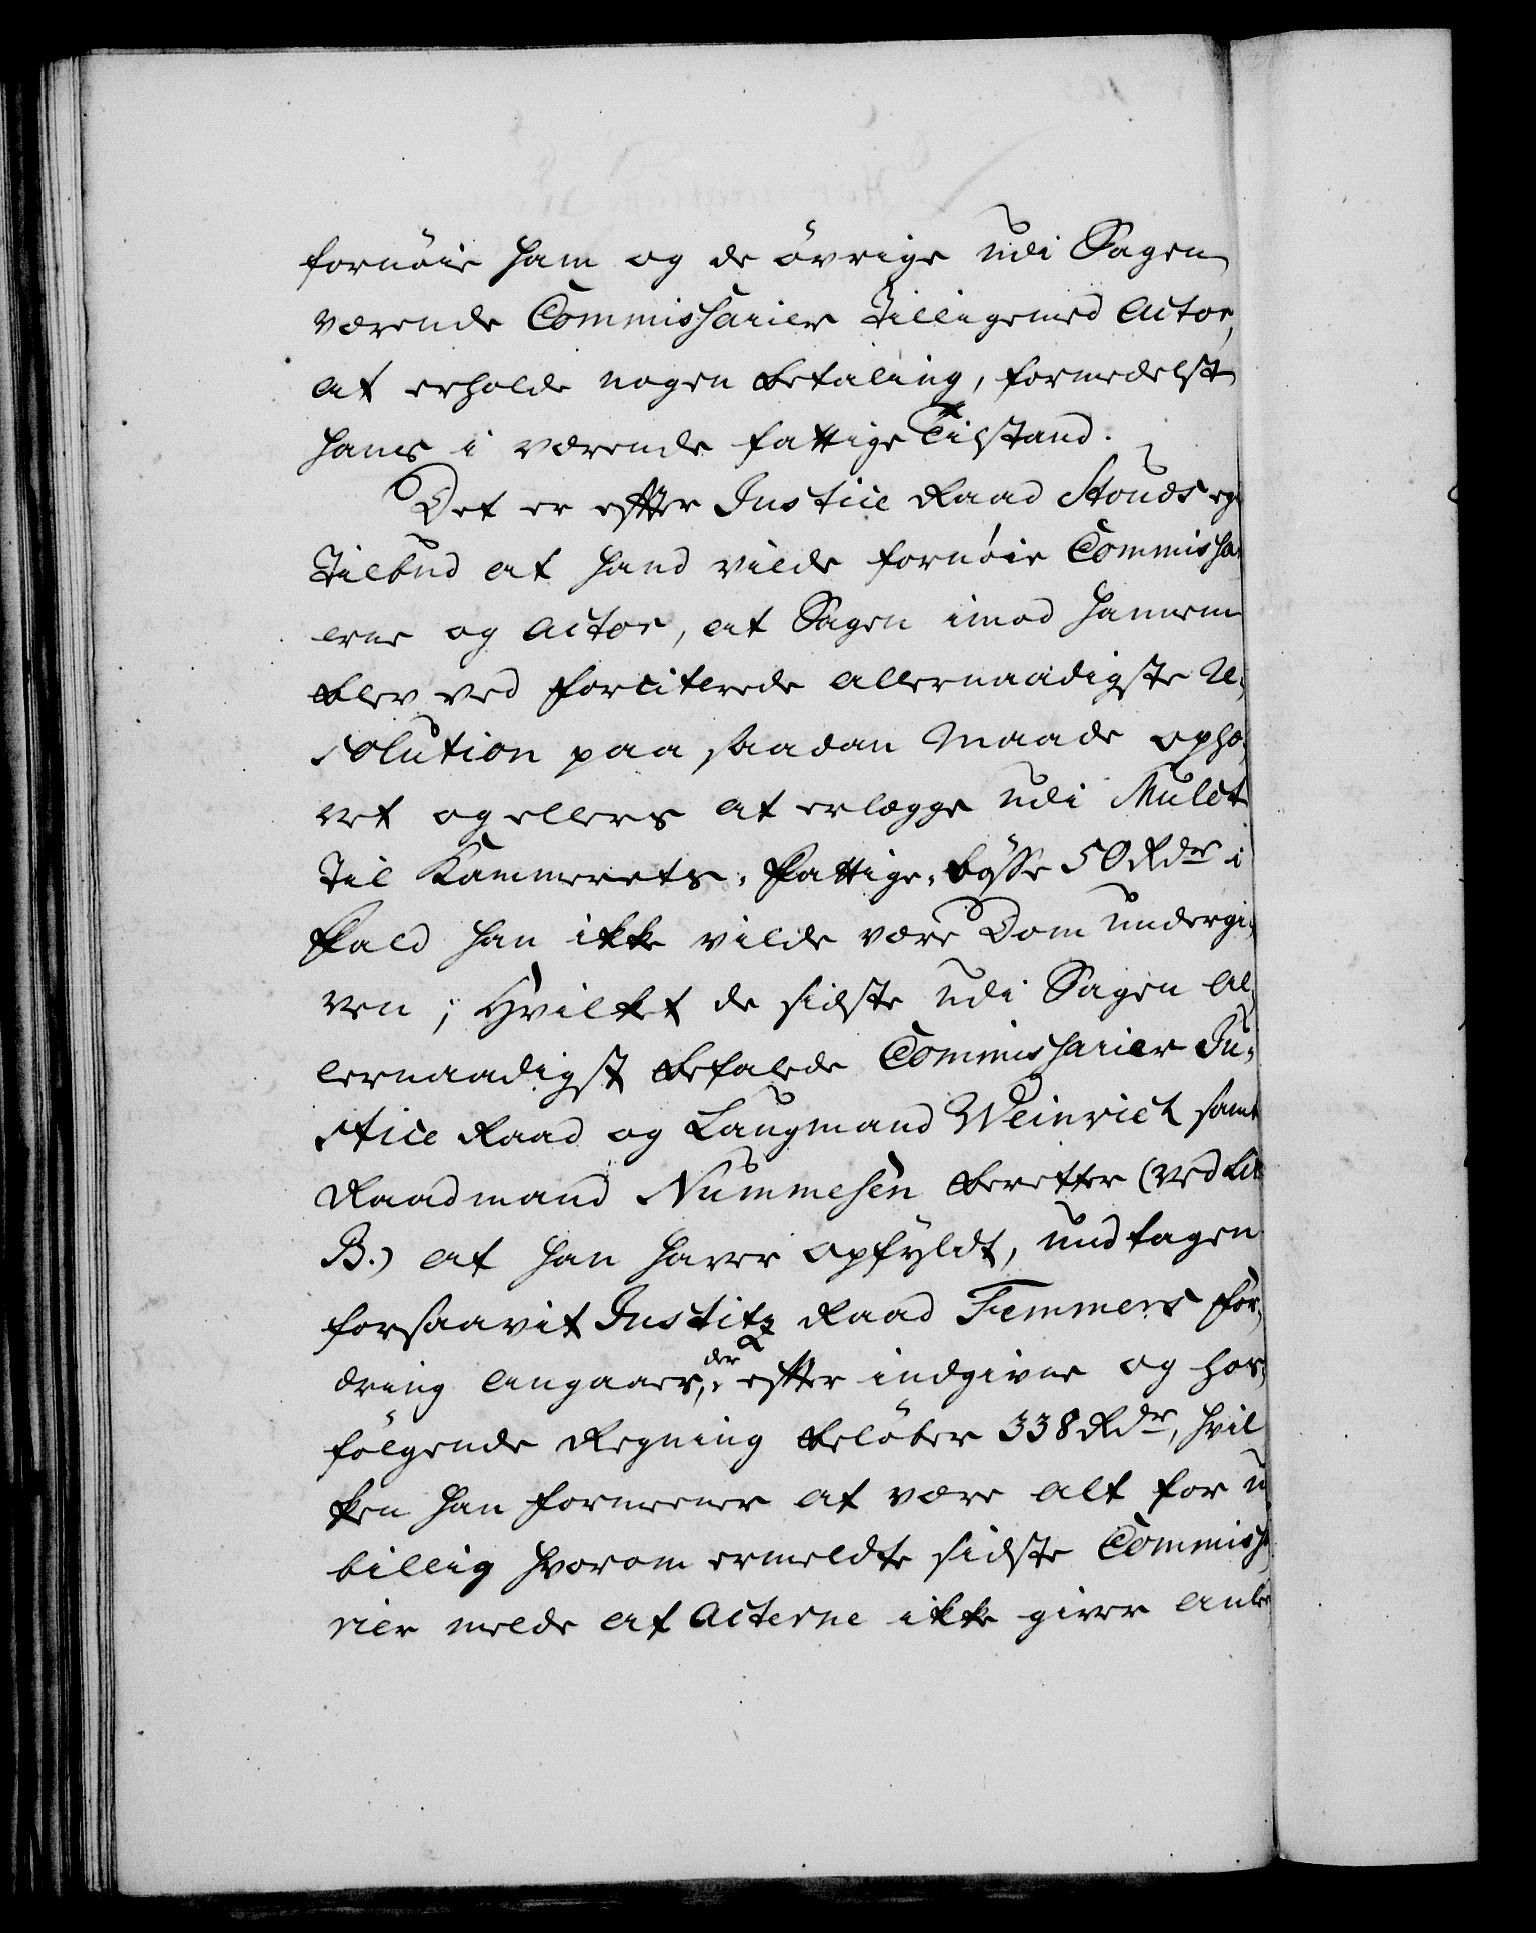 fornöie ham og de övrige udi Sagen
værende Commissarier tilligemed Actor,
at erholde nogen betaling, formedelst
hans i værende fattige Tilstand.
Det er efter Justice Raad Stouds eg
Tilbud at hand vilde fornöie Commissa
erne og Actor, at Sagen imod hannem
blev ved forciterede allernaadigste Re,
solution paa saadan Maade opho,
vet og ellers at erlægge udi Mulct
til Kammerets-Fattige-bösse 50 Rdr i
Fald han ikke vilde være Dom undergi,
ven; Hvilket de sidste udi Sagen al,
lernaadigst befalede Commissarier Ju,
stice Raad og Laugmand Weinrich samt
Raadmand Nummesen beretter (ved Lit
B.) at han haver opfyldt, undtagen
forsaavit Justitz Raad Temmers for,
dring angaaer, der efter indgivne og her,
fölgende Regning belöber 338 Rdr, hvil
ken han formeener at være alt for u
billig hvorom ermeldte sidste Commissa
rier melde at Acterne ikke giver anle